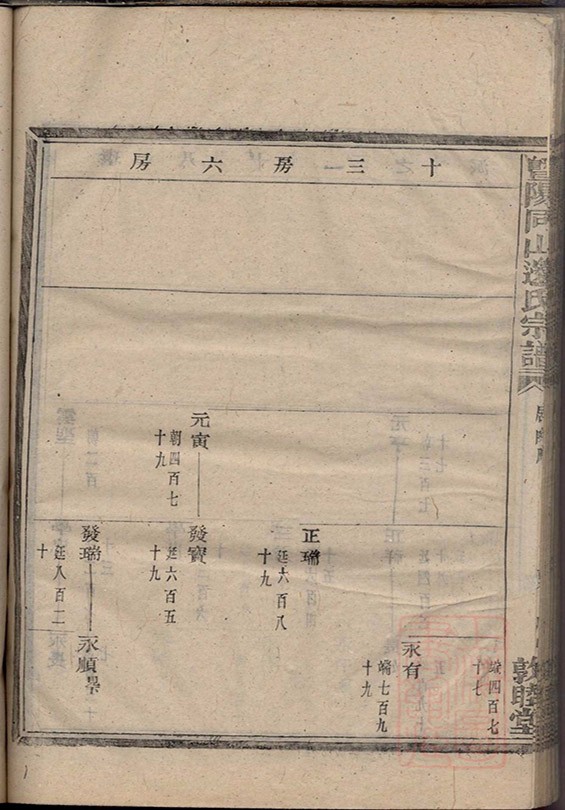 暨陽同山邊氏宗譜
敦睦堂
十三房六房
端四百七
十七
永有
端七百九
十九
正瑞
廷六百八
十九
元寅
朝四百七
十九
發寶
廷六百五
十九
發瑞
廷八百二
十
永順